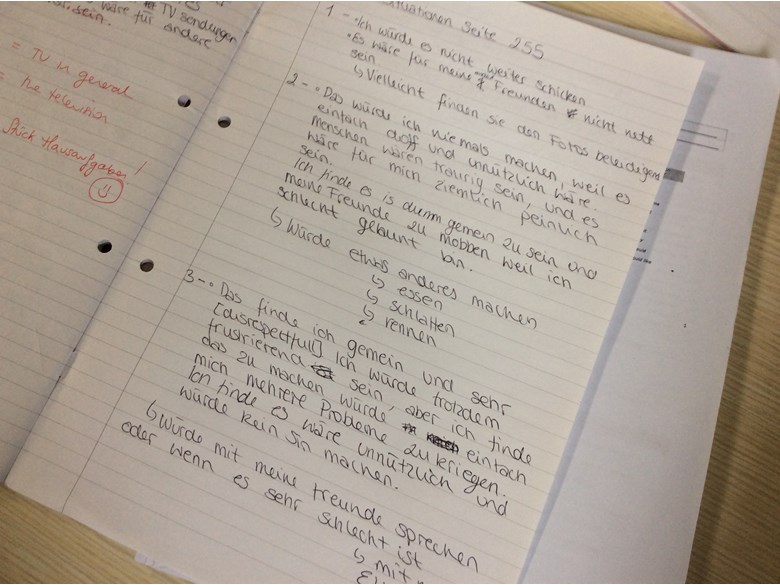 TV sendungen
wäre für andere
sein.
= TV in general
= the television
Stick Hausaufgaben!
Situationen Seite 255
1 - • Ich würde es nicht weiter schicken
• Es wäre für meine Freunden nicht nett
sein
↳ Vielleicht finden sie den Fotos beleidigend
2 - • Das würde ich niemals machen, weil es
einfach doff und unnützlich wäre.
menschen wären traurig sein, und es
wäre für mich ziemlich peinlich
sein.
Ich finde es is dumm gemein zu sein und
meine Freunde zu mobben weil ich
schlecht gelaunt bin.
↳ Würde etwas anderes machen
↳ essen
↳ schlaffen
↳ rennen
3 - • Das finde ich gemein und sehr
[disrespectfull] Ich würde trotzdem
frustrierend sein, aber ich finde
das zu machen würde einfach
mich mehrere Probleme zu kriegen.
Ich finde es wäre unnützlich und
würde kein Sin machen.
↳ Würde mit meine freunde sprechen
oder wenn es sehr schlecht ist
↳ mit